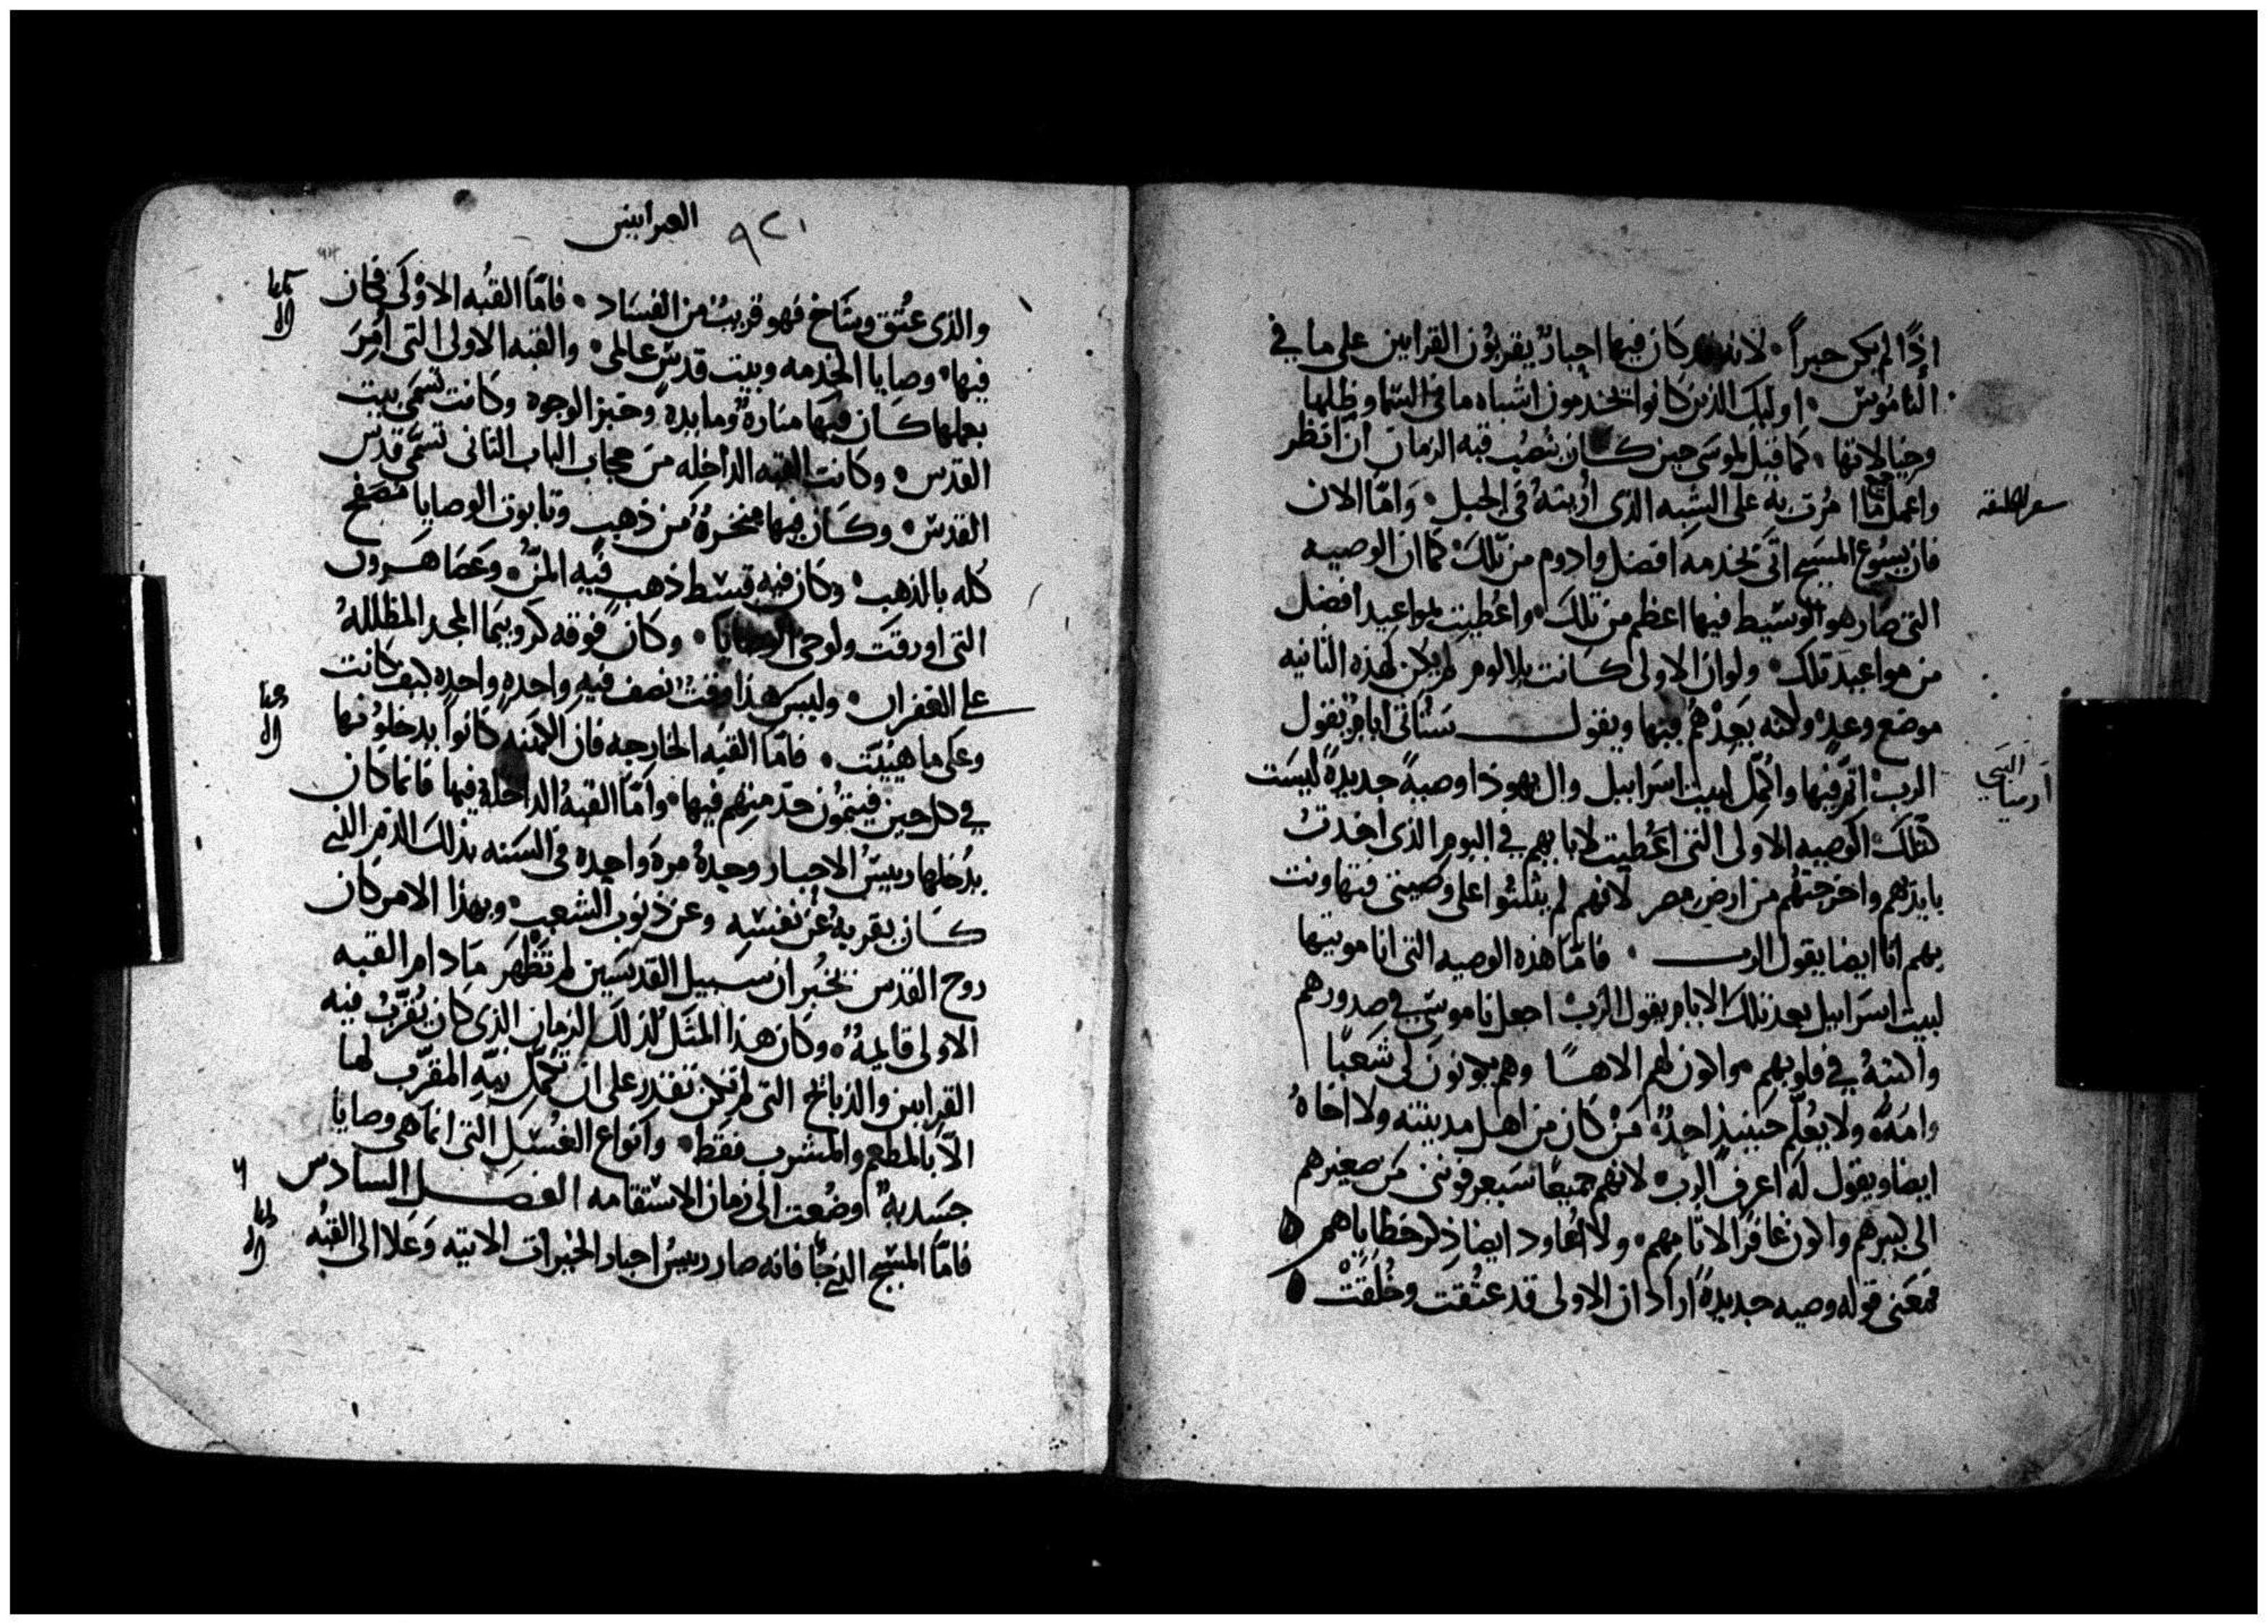 اذًا لم يكن حبراً ۰ لانه قد كان فيها احبارٌ يقربُون القرابين على ما في
الناموس ۰ اوليك الذين كانوا يخدمون اشباه ما في السما وظلها
وخيالاتها ۰ كما قيل لموسَى حين كان نصُب قبه الزمان ان انظر
واعمل جميع ما امُرت به على الشبه الذى اُريتهُ في الجبل ۰ وامّا الان
سفر الخليقه
فان يسُوع المسيح اتَى بخدمه افضل وادوم من تلكَ ۰ كما ان الوصيه
التى صار هو الوسَيط فيها اعظم من تلكَ ۰ واعُطيت بمواعيد افضل
من مواعيد تلك ۰ ولو ان الاولى كانت بلا لوم لم يكن لهذه الثانيه
موضع وعدٍ ۰ ولكنه يَعِدهُم فيها ويقول ستُاتى ايامٌ يقول
الربُ اتمّ فيها واكمّل لبيت اسَراييل وال يهوذا وصيةً جديدةً ليسَت
النبَي
ارميا
كتلكَ الوصيه الاولى التى اعُطيت لابايهم في اليوم الذى اخدتُ
بايديهم واخرجتهُم من ارض مصر لانهم لم يثبتُوا على وصيتى فتهاونت
بهم انا ايضا يقول الرب ۰ فامّا هذه الوصيه التى انا موتيها
لبيت اسَراييل بعد تلك الايام يقول الربُ اجعل ناموسَي في صدورهم
واكتبهُ في قلوبهم ۰ واكون لهم الاهاً وهم يكونونَ لى شعبًا
وامَهً ولا يعُلّم حينيذٍ احدٌ مَنْ كان من اهل مدينته ولا اخاهُ
ايضا ويقول له اعرف الرب ۰ لانهم جميعًا سَيعرفونى من صغيرهم
الى كبيرهم واكون غافرًا لاثامهم ۰ ولا اعُاود ايضا ذِكر خطاياهم ۰
فمعَنى قوله وصيه جديدهً اراد ان الاولى قد عتُقت وخُلقَتْ ۰
٩٢١ العبرانيين
والذى عتُق وشَاخ فهو قريبٌ من الفسَاد ۰ فامّا القبُه الاوُلىَ فكان
فيها ۰ وصايا الخدمه وبيت قدسٍ عالمى ۰ والقبه الاولى التى اُمِرَ
بعملها كان فيَها مَنارةٌ ومايدهٌ وخبز الوجوه وكانت تسَمَى بيت
القدس ۰ وكانت القبه الداخِله من حجاب الباب الثانى تسَمَّى قدس
القدس ۰ وكان فيها مِنخرةٌ من ذهبٍ وتابوت الوصايا مُصَفح
كله بالذهب ۰ وكان فيه قسَط ذهب فيه المنُّ ۰ وعَصَا هَرون
التى اورقت ولوحى الوصايا ۰ وكان فوقه كروبيمَا المجد المظللهُ
على الغفران ۰ وليس هذا وقتُ نصف فيه واحِدهٍ واحِدهٍ كيف كانت
وعَلى ما هييَت ۰ فامّا القبُه الخارجه فان الكهنه كانوا يدخلوُنها
في كل حين فيتموُن خدمتهم فيها ۰ وامّا القبهُ الداخلة فيها فانما كان
يدُخلها رييسُ الاحبار وحدهُ مرةً واحِده في السَنه بذلكَ الدمِ الذي
كان يقربهُ عن نفسِه وعن ذنوب الشعب ۰ وبهذا الامر كان
روح القدس يُخبر ان سَبيل القديسَين لم تَظهَر مَا دام القبه
الاولى قايمهً ۰ وكان هذا المثَل لذلكَ الزمان الذى كان يُقرّبُ فيه
القرابين والذبايح التى لم تكن تقدر على ان تكُمّل نيّه المقرّب لها
الّا بالمطعم والمشرب فقط ۰ وانواع الغسُل التى انماَ هى وصايا
جسَديهٌ اوضُعت الى زمان الاستقامه الفصل السادس
فامّا المسَيح الذى جَا فانه صار رييسُ احبار الخيرات الاتيه وَعَلا الى القبُه